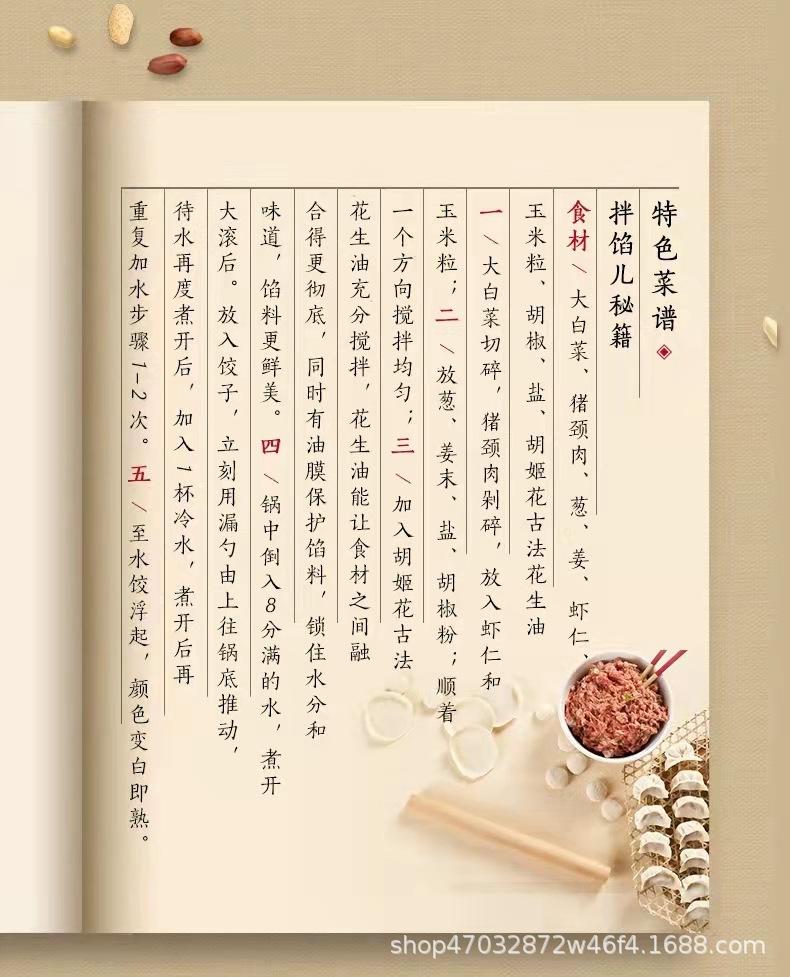 特色菜谱
拌馅儿秘籍
食材/大白菜、猪颈肉、葱、姜、虾仁、
玉米粒、胡椒、盐、胡姬花古法花生油
一/大白菜切碎，猪颈肉剁碎，放入虾仁和
玉米粒；二/放葱、姜末、盐、胡椒粉；顺着
一个方向搅拌均匀；三/加入胡姬花古法
花生油充分搅拌，花生油能让食材之间融
合得更彻底，同时有油膜保护馅料，锁住水分和
味道，馅料更鲜美。四/锅中倒入8分满的水，煮开
大滚后。放入饺子，立刻用漏勺由上往锅底推动，
待水再度煮开后，加入1杯冷水，煮开后再
重复加水步骤1-2次。五/至水饺浮起，颜色变白即熟。
shop47032872w46f4.1688.com